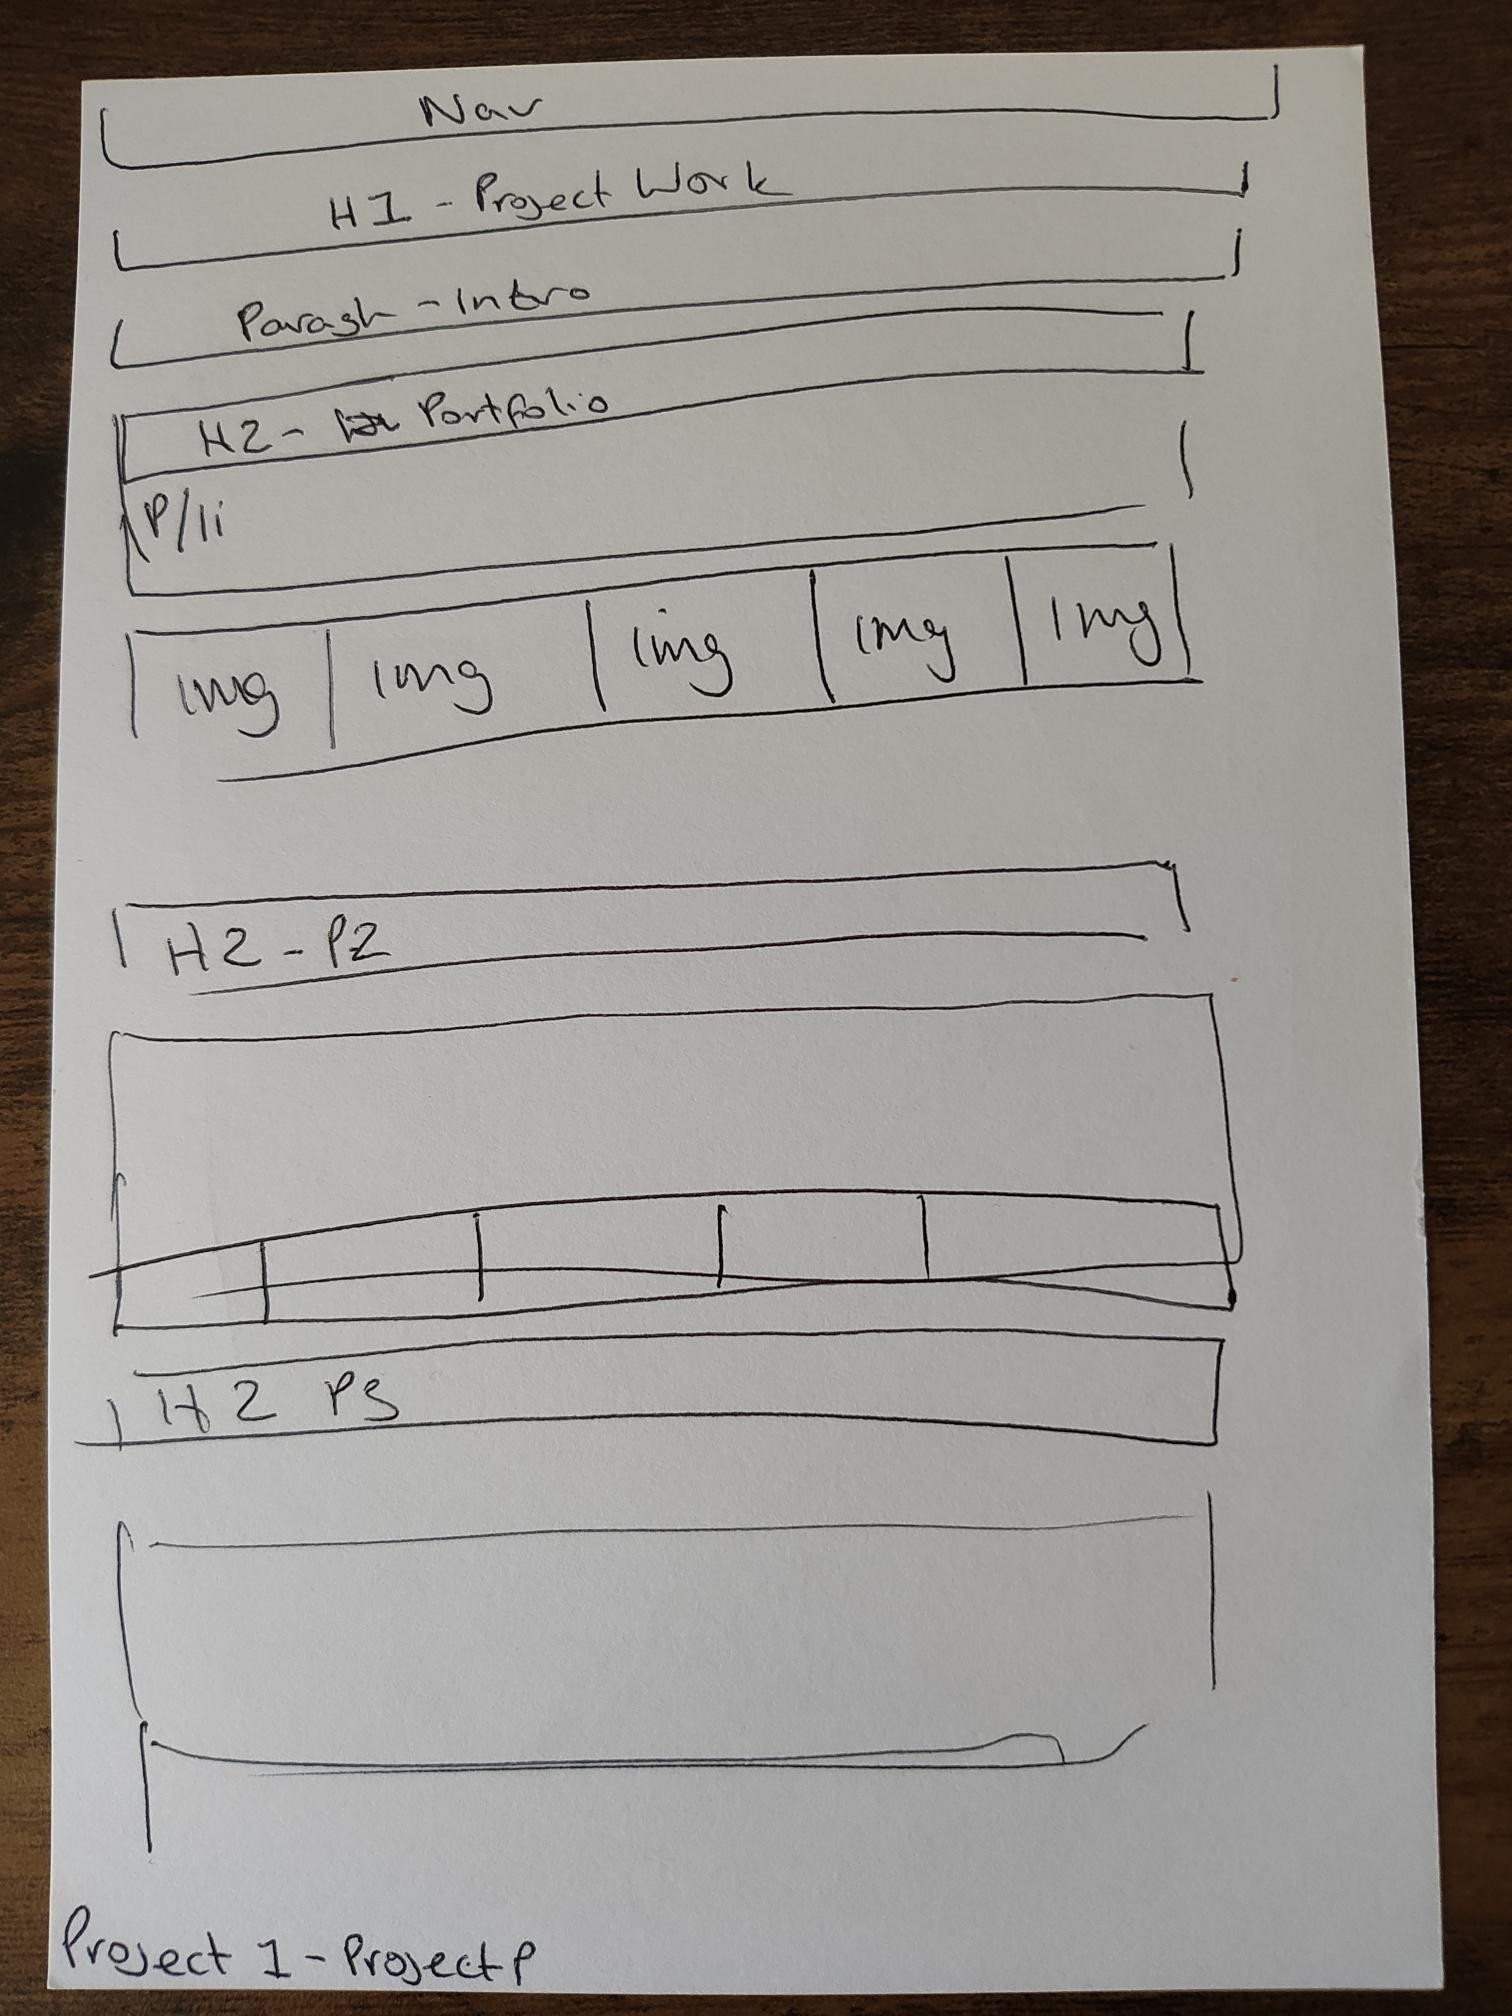 Nav
H1 - Project Work
Paragh - Intro
H2 - Portfolio
P/li
img img img img img
H2 - P2
H2 P3
Project 1 - Project P